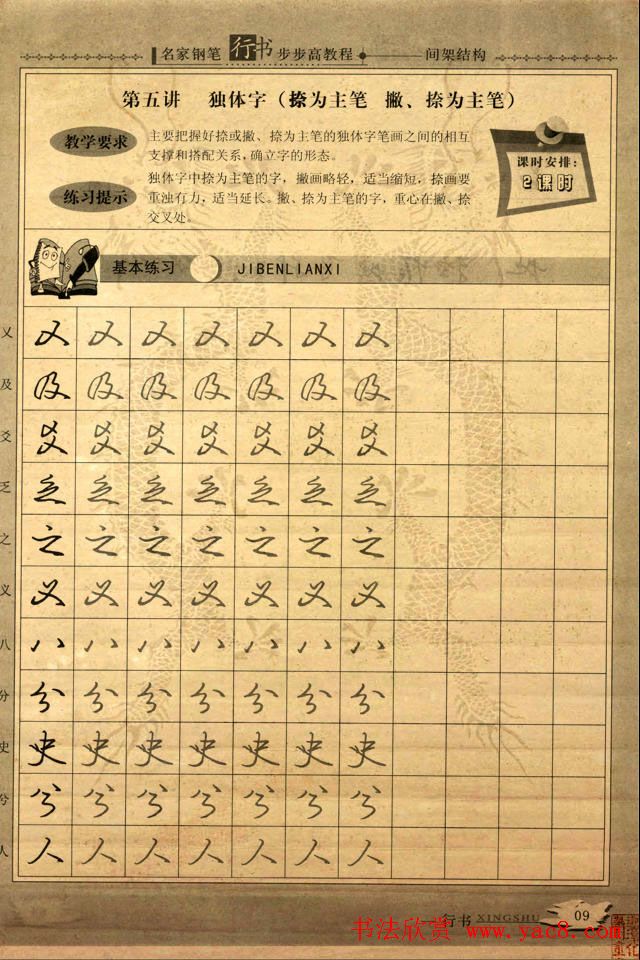 名家钢笔 行书 步步高教程 间架结构
第五讲 独体字（捺为主笔 撇、捺为主笔）
教学要求
主要把握好捺或撇、捺为主笔的独体字笔画之间的相互
支撑和搭配关系，确立字的形态。
练习提示
独体字中捺为主笔的字，撇画略轻，适当缩短，捺画要
重浊有力，适当延长。撇、捺为主笔的字，重心在撇、捺
交叉处。
课时安排：
2课时
基本练习 JIBENLIANXI
乂 乂 乂 乂 乂 乂 乂 乂
及 及 及 及 及 及 及 及
爻 爻 爻 爻 爻 爻 爻 爻
乏 乏 乏 乏 乏 乏 乏 乏
之 之 之 之 之 之 之 之
义 义 义 义 义 义 义 义
八 八 八 八 八 八 八 八
分 分 分 分 分 分 分 分
史 史 史 史 史 史 史 史
兮 兮 兮 兮 兮 兮 兮 兮
人 人 人 人 人 人 人 人
行书 XINGSHU 09
书法欣赏 www.yac8.com